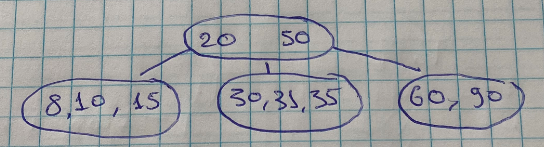 20 50
8,10, 15 30,31,35 60, 90